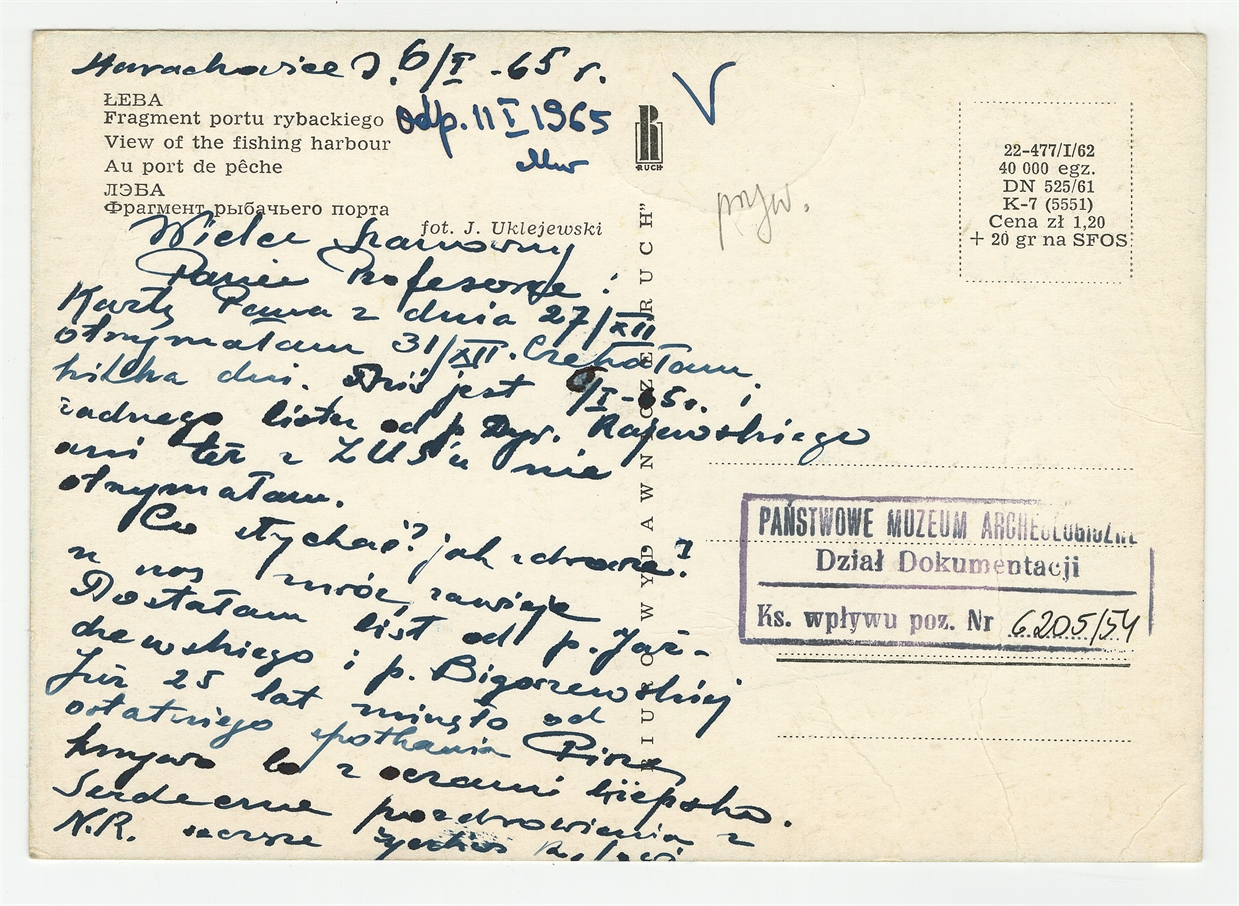 Starachowice D. 6/I -65 r.
ŁEBA
Fragment portu rybackiego
View of the fishing harbour
Au port de pêche
ЛЭБА
Фрагмент рыбачьего порта
fot. J. Uklejewski
odp. 11 I 1965
RUCH
V
pryw.
22-477/I/62
40 000 egz.
DN 525/61
K-7 (5551)
Cena zł 1,20
+ 20 gr na SFOS
BIURO WYDAWNICZE „RUCH”
Wielce Szanowny
Panie Profesorze!
Kartę Pana z dnia 27/XII
otrzymałam 31/XII. Czekałam
kilka dni. Dziś jest 6/I-65r. i
żadnego listu od p. Dyr. Rajewskiego
ani też z ZUS'u nie
otrzymałam.
Co słychać? jak zdrowie?
u nas mróz, zawieje
Dostałam list od p. Jaż-
dzewskiego i p. Bigoszewskiej
Już 25 lat minęło od
ostatniego spotkania Piszę
krzywo bo z oczami kiepsko.
Serdeczne pozdrowienia z
N.R. szczere
PAŃSTWOWE MUZEUM ARCHEOLOGICZNE
Dział Dokumentacji
Ks. wpływu poz. Nr 6205/54